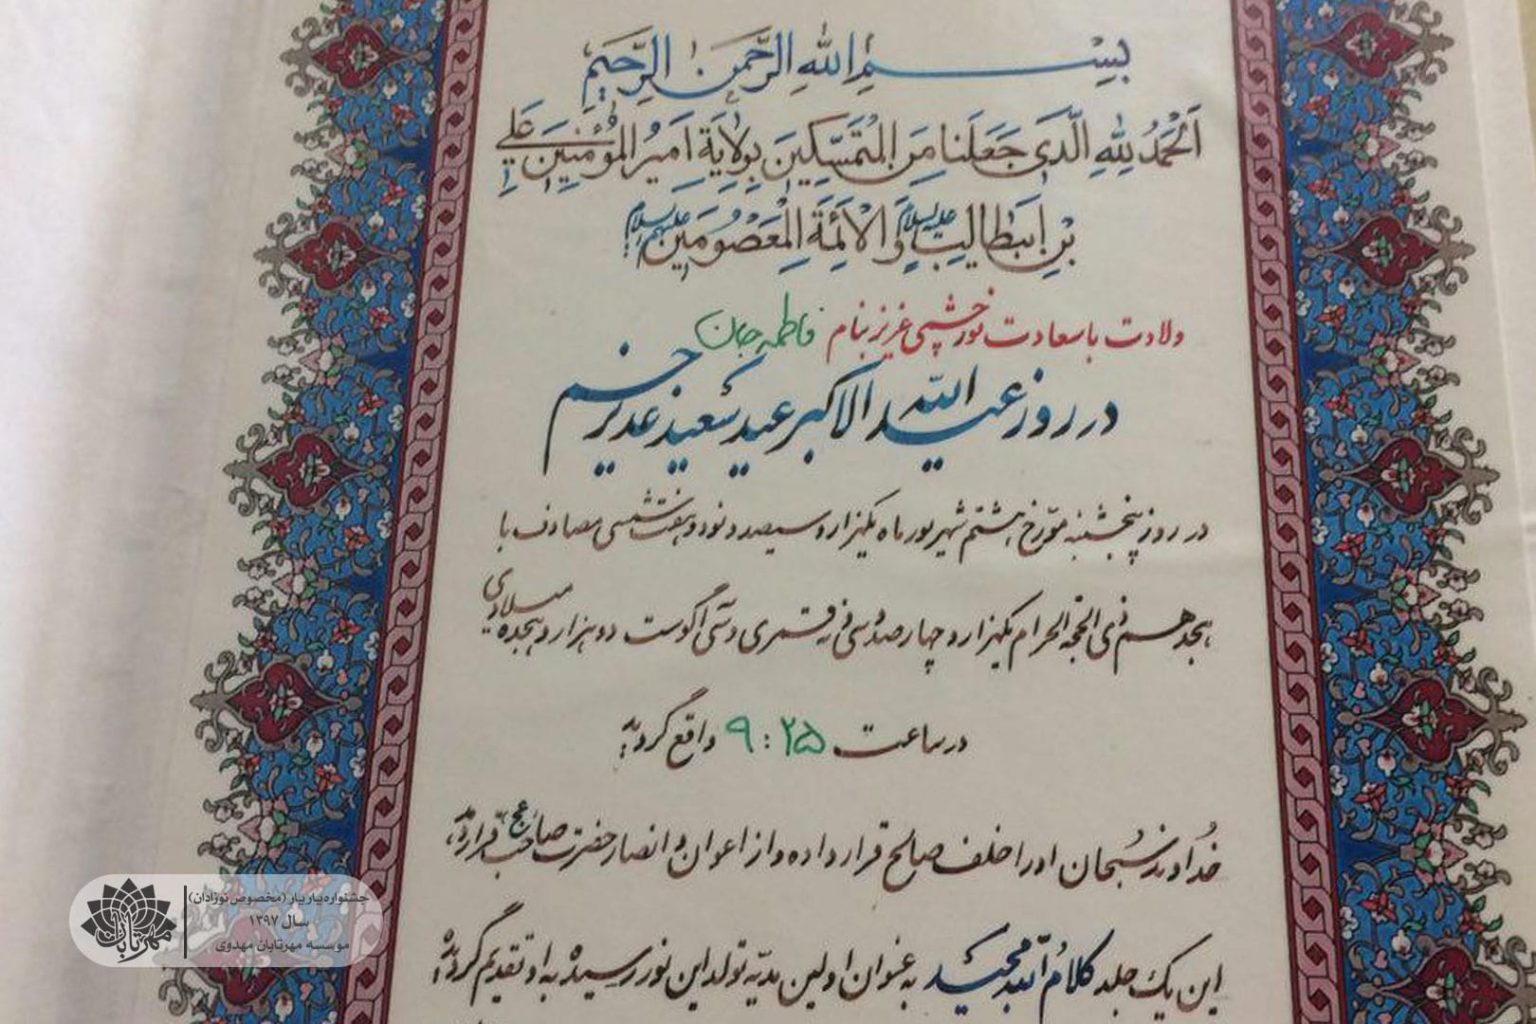 بِسْمِ اللهِ الرَّحْمٰنِ الرَّحِيمِ
اَلْحَمْدُ لِلّٰهِ الَّذِى جَعَلَنا مِنَ الْمُتَمَسِّكِينَ بِوِلاٰيَةِ اَمِيرِ الْمُؤْمِنِينَ عَلِيِّ
بْنِ اَبِيطالِبٍ عليه السلام وَ الْاَئِمَّةِ الْمَعْصُومِينَ عليهم السلام
ولادت با سعادت نور چشمی عزیز بنام فاطمه جان
در روز عید الله الاکبر عید سعید غدیر خم
در روز پنجشنبه مورخ هشتم شهریور ماه یکهزار و سیصد و نود و هفت شمسی مصادف با
هجدهم ذی الحجة الحرام یکهزار و چهارصد و سی و نه قمری و سی آگوست دو هزار و هجده میلادی
در ساعت ۹:۲۵ واقع گردید
خداوند سبحان او را خلف صالح قرار داده و از اعوان و انصار حضرت صاحب عج قرار دهد
این یک جلد کلام الله مجید به عنوان اولین هدیه تولد این نورسیده به او تقدیم گردید
جشنواره یار یار (مخصوص نوزادان)
سال ۱۳۹۷
موسسه مهرتابان مهدوی
مهرتابان